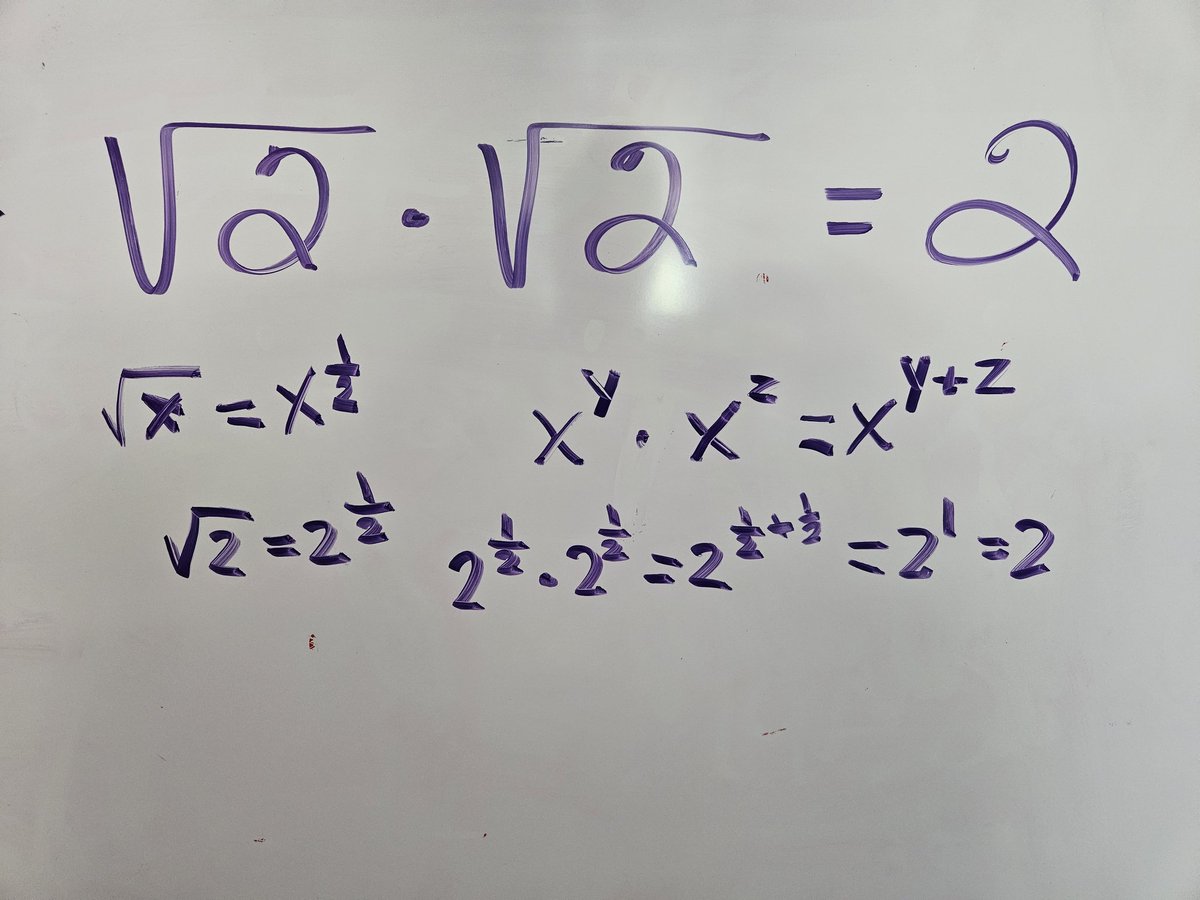 √2 · √2 = 2
√x = x^(1/2)    x^y · x^z = x^(y+z)
√2 = 2^(1/2)    2^(1/2) · 2^(1/2) = 2^(1/2+1/2) = 2^1 = 2